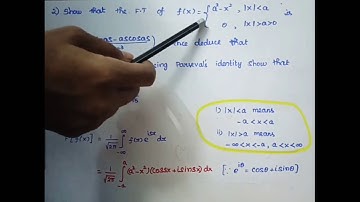 2) Show that the F.T of f(x) = { a² - x² , |x| < a is
0 , |x| > a > 0
as - as cos as Hence deduce that
using Parseval's identity show that
i) |x| < a means
-a < x < a
ii) |x| > a means
-∞ < x < -a, a < x < ∞
[f(x)] = 1/√2π ∫_{-∞}^{∞} f(x) e^{isx} dx
= 1/√2π ∫_{-a}^{a} (a² - x²)(cos sx + i sin sx) dx [∵ e^{iθ} = cosθ + i sinθ]